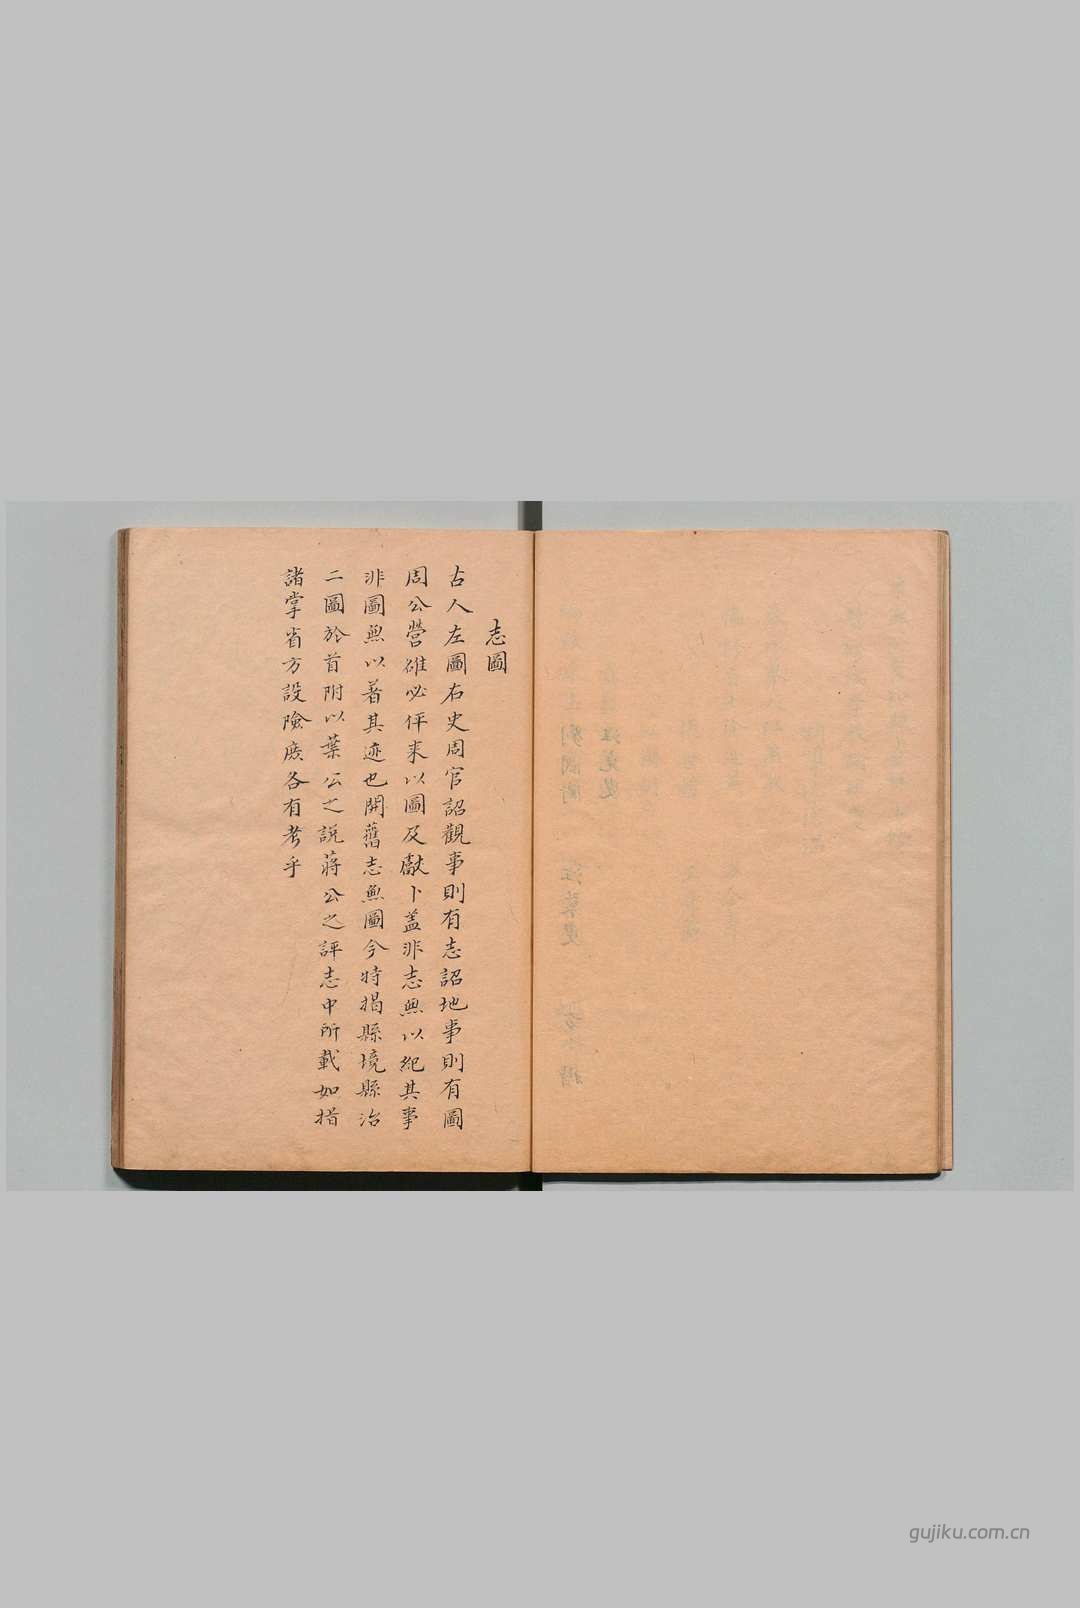 志圖
古人左圖右史周官詔觀事則有志詔地事則有圖
周公營雒必伻來以圖及獻卜盖非志無以紀其事
非圖無以著其迹也開舊志無圖今特揭縣境縣治
二圖於首附以葉公之說蔣公之評志中所載如指
諸掌省方設險庻各有考乎
gujiku.com.cn